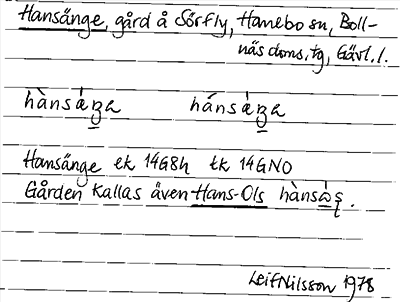 Hansänge, gård å Sörfly, Hanebo sn, Boll-
näs doms.tg, Gävl.l.
Hansänge ek 14G8h tk 14GNO
Gården kallas även Hans-Ols
Leif Nilsson 1978